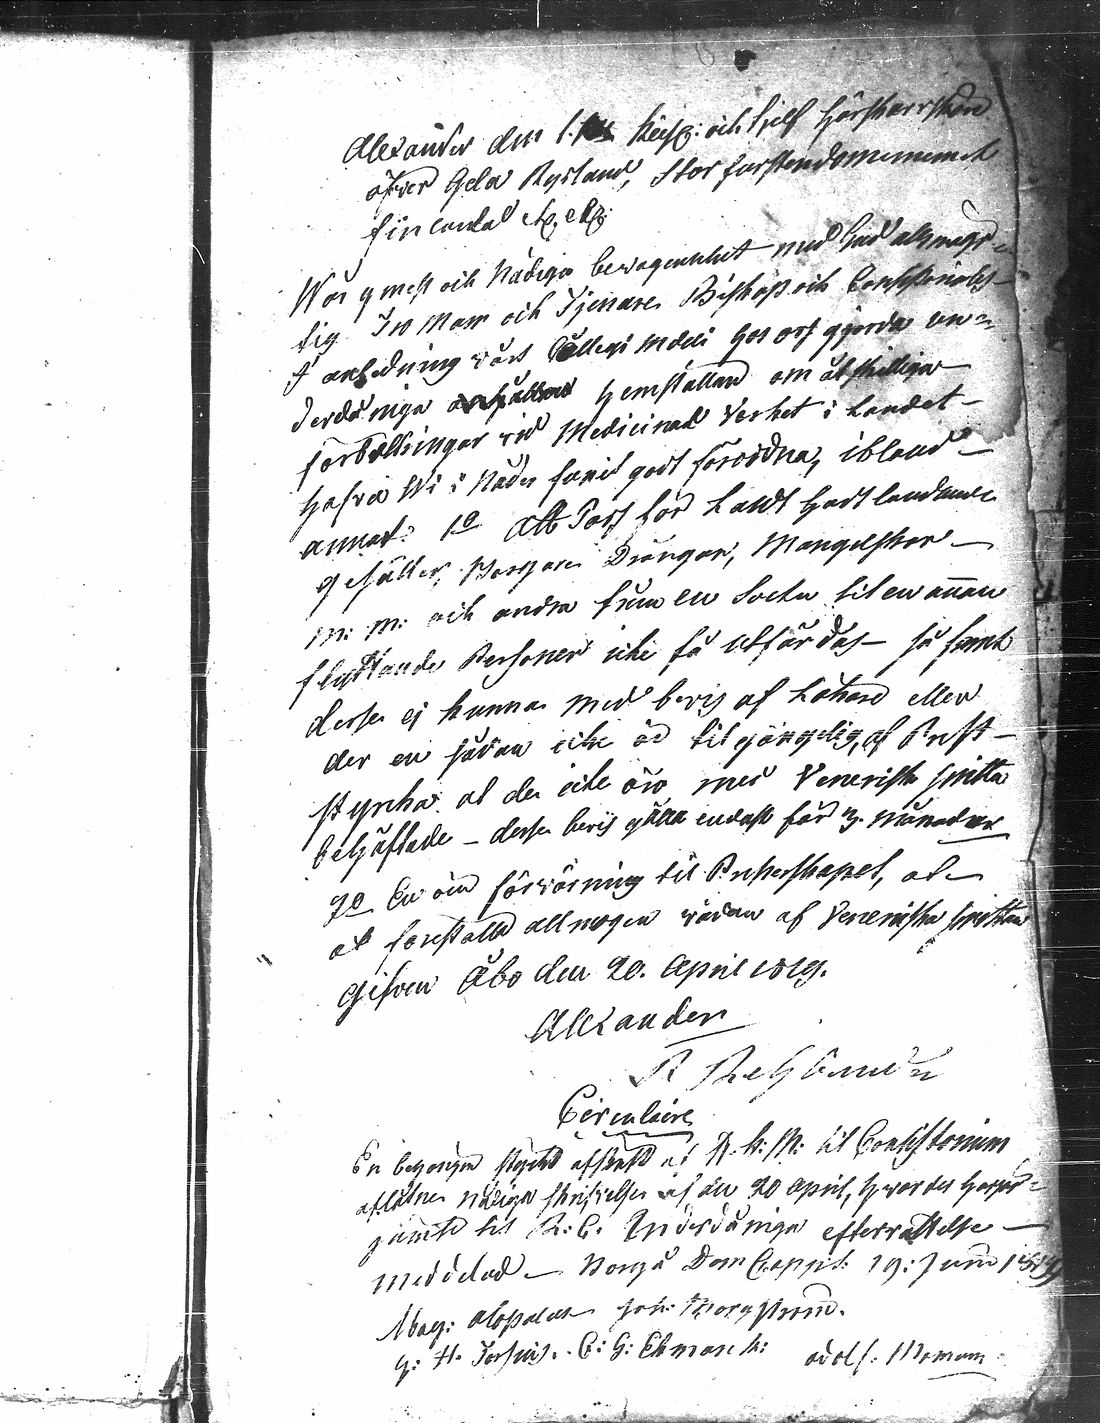 Alexander den I. Keis: och Sielf Härskarskare
öfver Hela Rysland, Stor furstendömemenet
finland etc, etc:
Wår ynnest och Nådiga bewågenhet med Gud alzmägs-
tig Tro Man och Tjenare Biskop och Consistoriales
I anledning vårt Collegi Medici hos oss gjorda un=
derdåniga hemställan om åtskilliga
förbättringar vid Medicinal Verket i Landet
hafva Wi i Nåder funnit godt förordna, ibland
annat: 1o Att Pass för Landt handtlandande
gesäller, Borgare Drängar, Månglerskor
m: m: och andra från en Socken til en annan
flyttande Personer icke få utfärdas så framt
desse ej kunna med bevis af Läkare eller
der en sådan icke är tilgängelig, af Prest
styrcka at de icke äro med Veneriska smitta
behäftade - desse bevis gälla endast för 3. månader
2o En öm förväning til Presterskapet, at
at förestäla allmogen vådan af Veneriska smittan
Gifven Åbo den 20. April 1819.
Alexander
R Rehbinder
Circulaire
En behörigen styrckt afskrift af K. K. M: til Consistorium
aflåtne Nådiga skrifvelse af den 20 April, hvarder härför=
jämte til R: C. Underdåniga efterrättelse
meddelad - Borgå Dom Capit: 19: Junii 1819
Mag: Alopaeus Joh: Borgström.
G: H. C: G: Ekmarck: Adolf: Moman